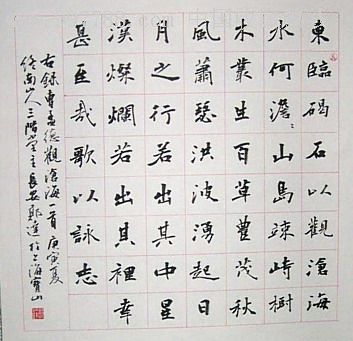 東臨碣石以觀滄海
水何澹〻山島竦峙樹
木叢生百草豐茂秋
風蕭瑟洪波湧起日
月之行若出其中星
漢燦爛若出其裡幸
甚至哉歌以詠志
右錄曹孟德觀滄海一首庚寅夏
終南山人三階堂主長安於上海寶山